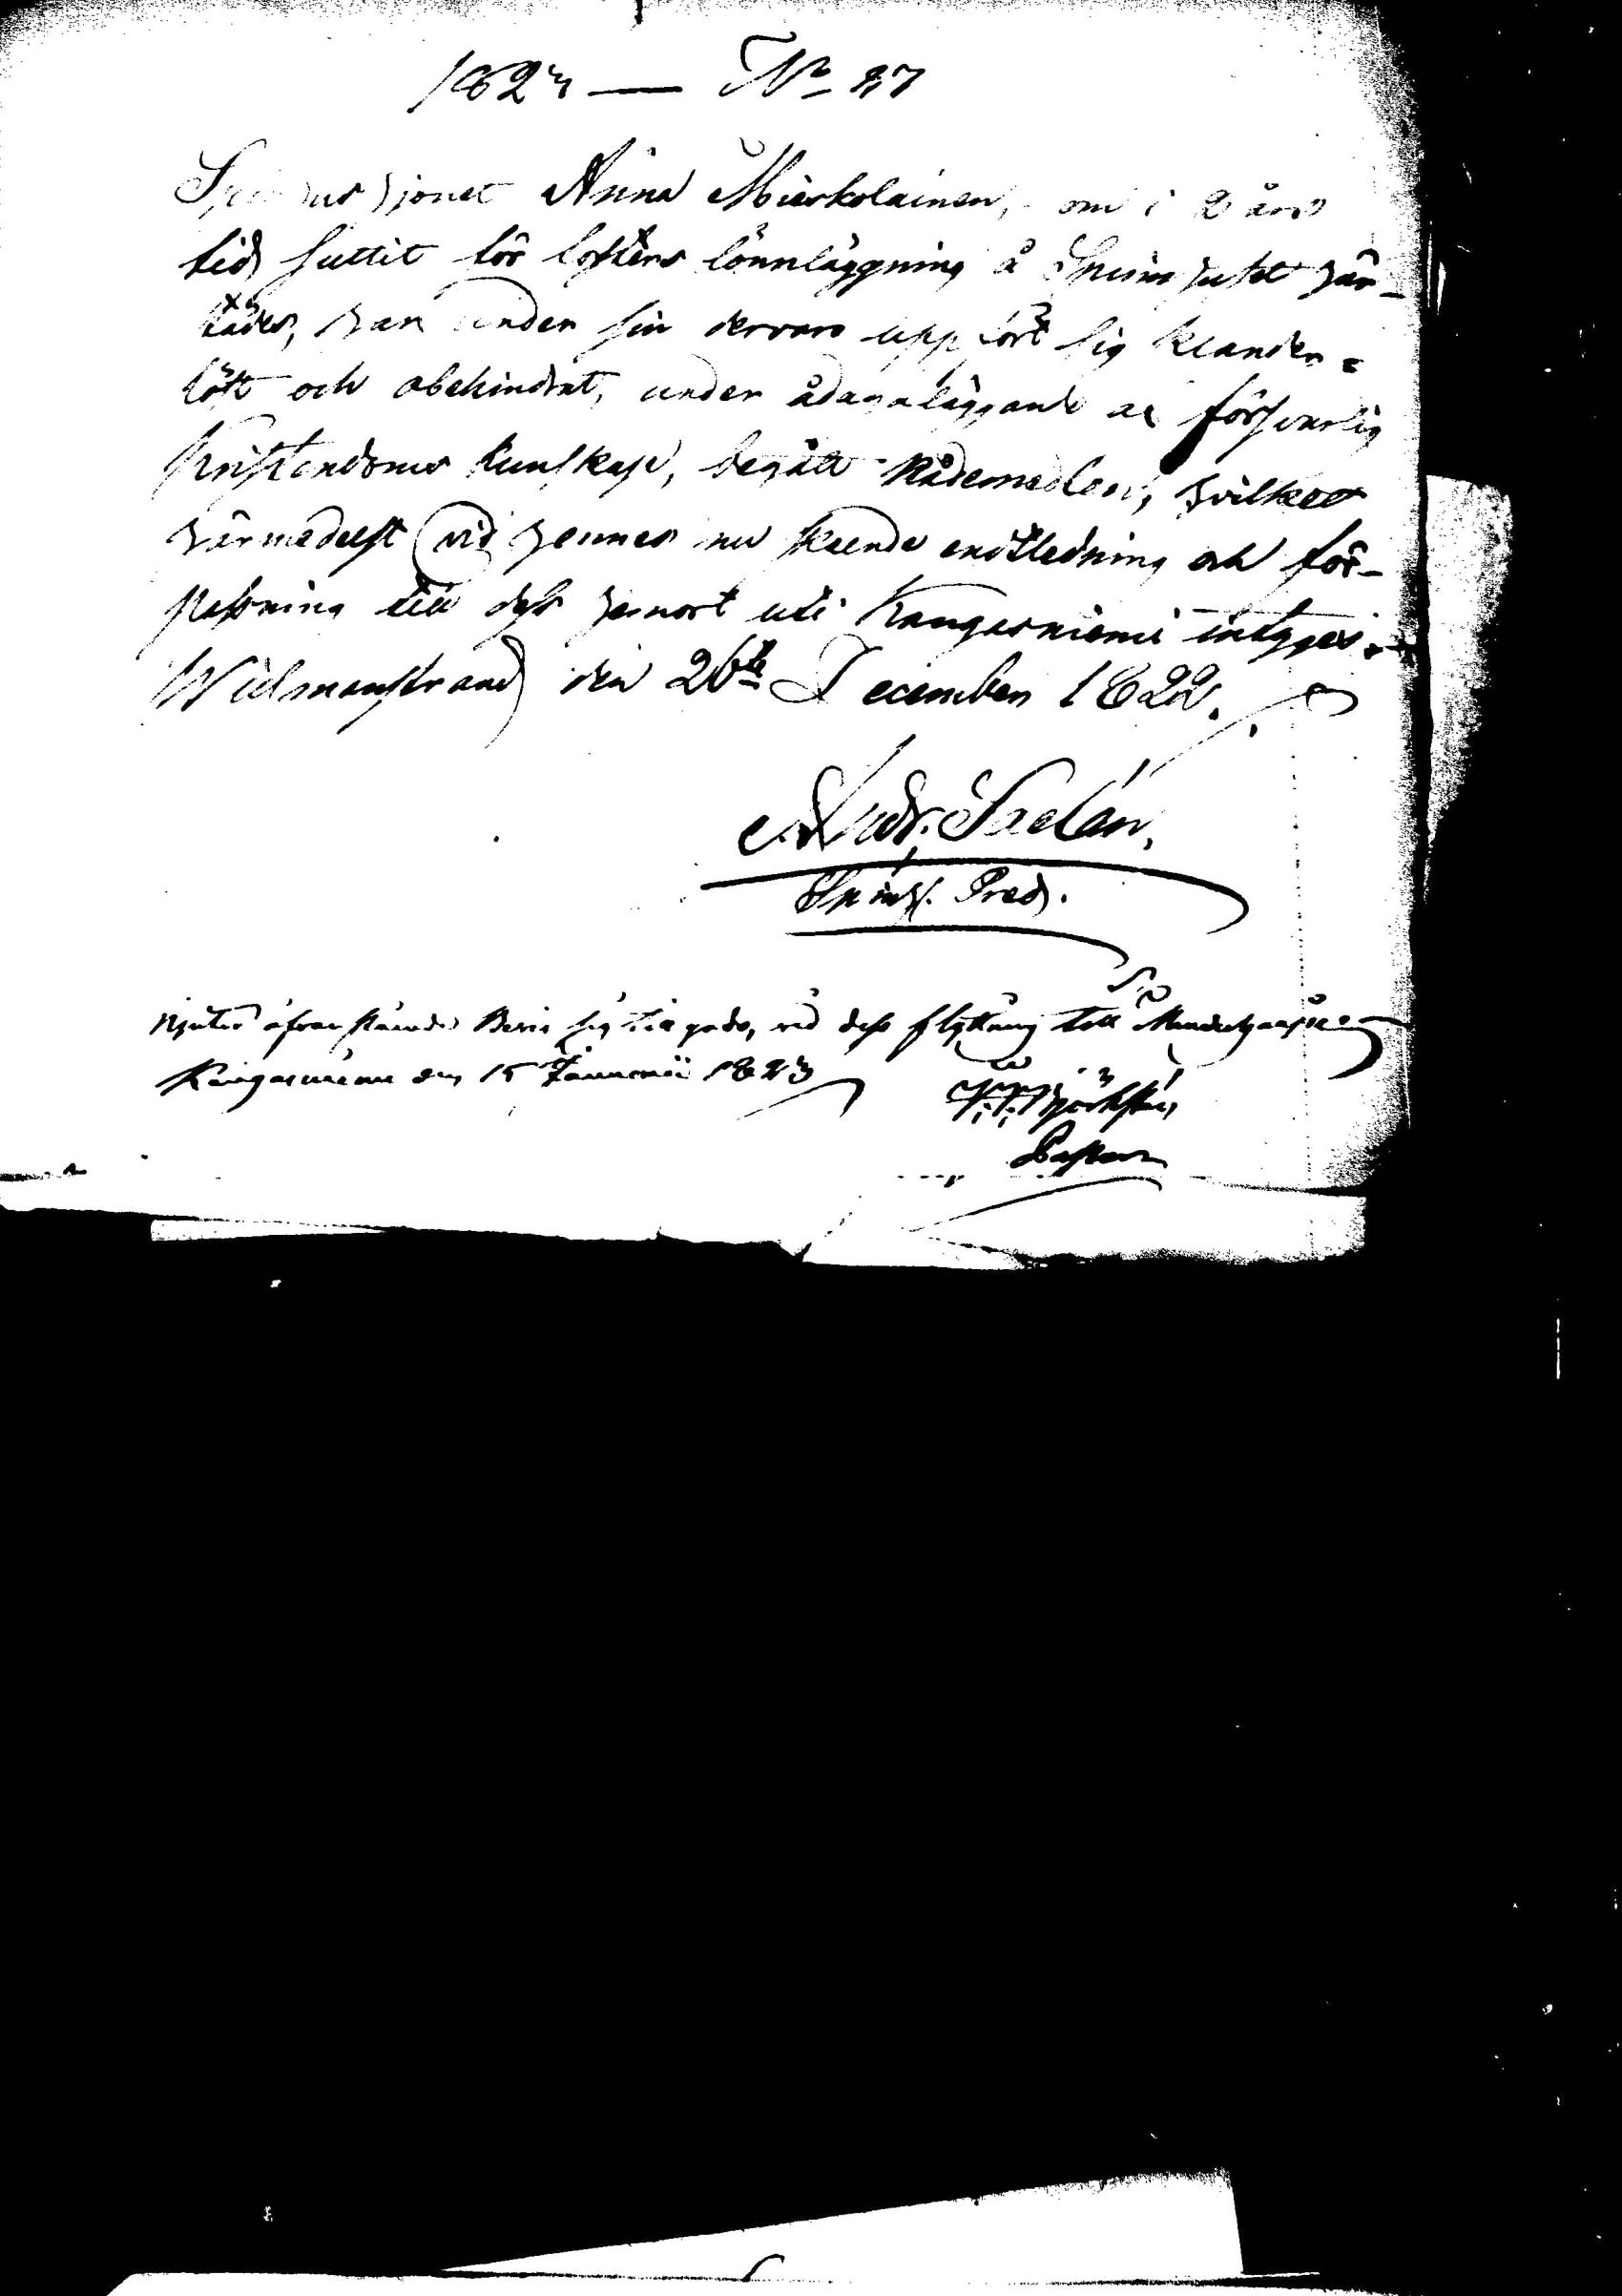 1823 — No 27
Spinnhus hjonet Anna Mierkolainen, som i 2 års
tid suttit för fosters lönnläggning å Spinnhuset här-
städes, har under sin dervaro uppfört sig klander-
löst och obehindrat, under ådagaläggande af försvarlig
Kristendoms kunskap, begått Nådemedlen, hvilket
härmedelst vid hennes nu skeende entledning och för-
passning till dess hemort uti Kangasniemi intygas.
Wilmanstrand den 26te December 1822.
And. Saelan,
Spinnh. Pred.
Njuter ofvanstående Bevis sig till godo, vid dess flyttning till
Kangasniemi den 15 Januarii 1823
Björkstén
Pastor